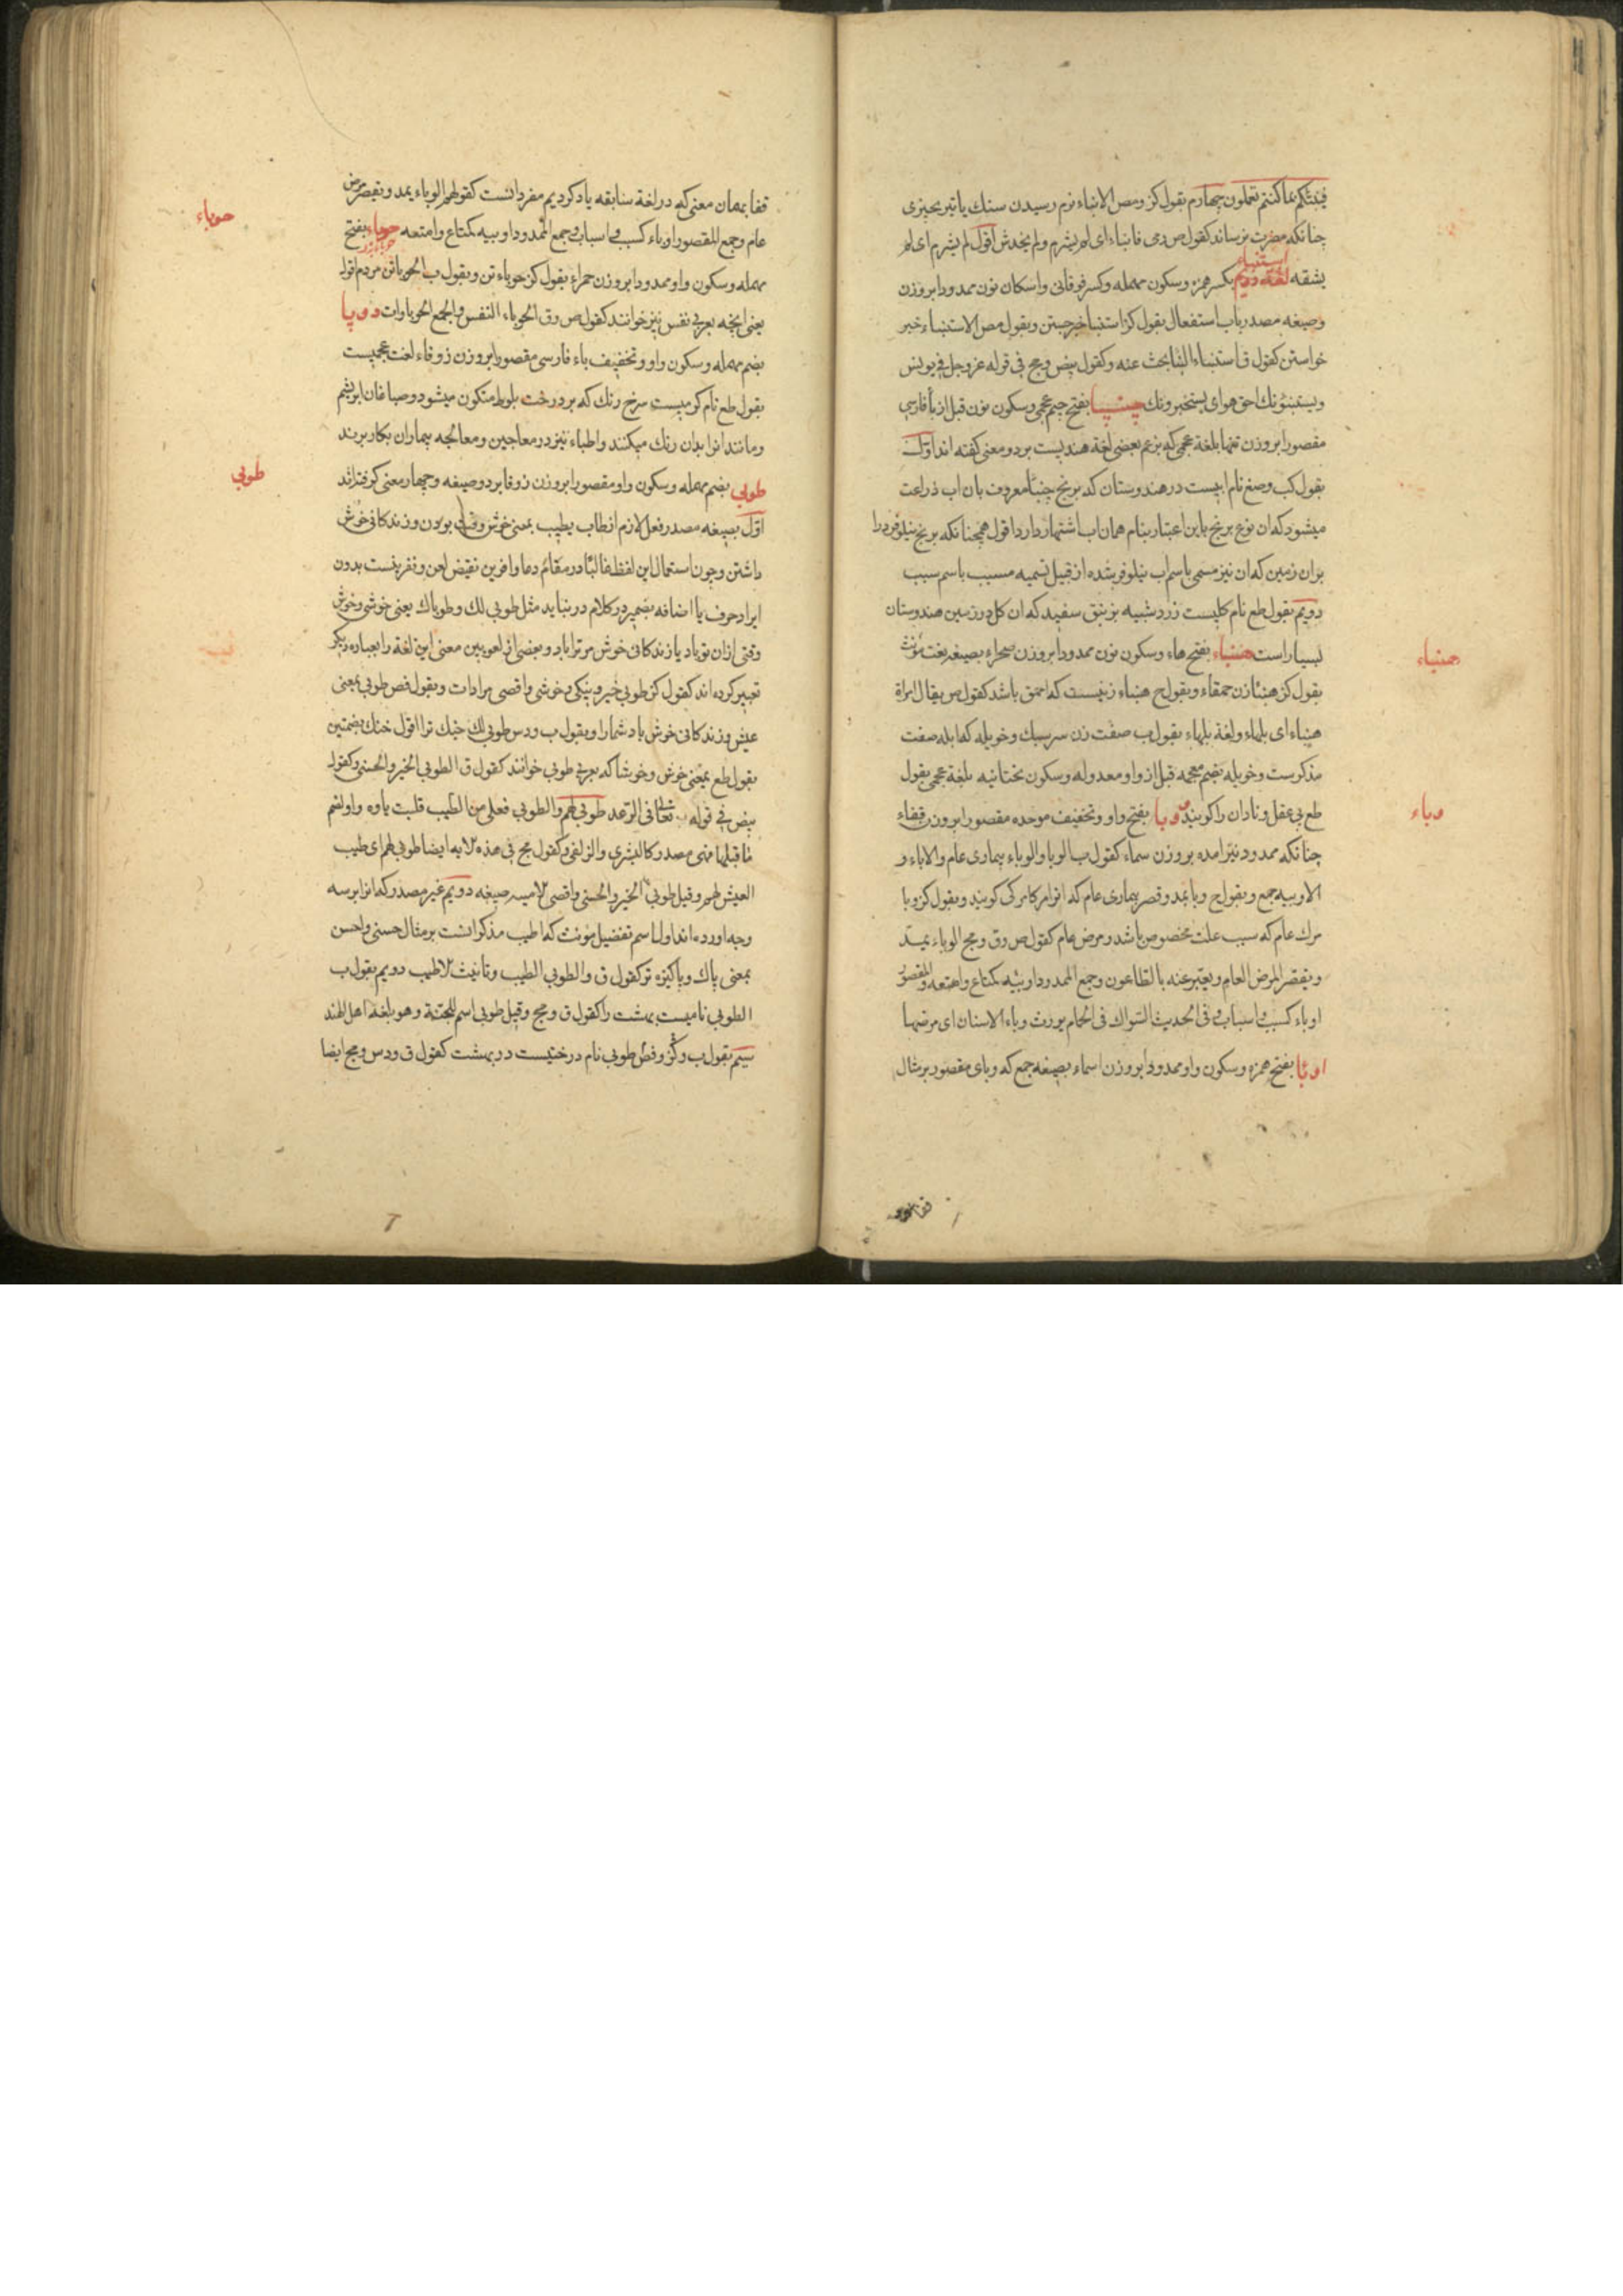 فینبئکم بما کنتم تعملون چهارم بقول کز ومص الانباء نرم رسیدن سنك یا تیر بچیزی
چنانکه مضرت نرساند کقول ص رمی فانباء ای لم یشرم ولم یخدش اقول لم یشرم ای لم
یشقه لغة دویم استنباء بکسر همزه وسکون مهمله وکسر فوقانی واسکان نون ممدودا بروزن
وصیغه مصدر باب استفعال بقول کز استنبا خبر جستن وبقول مص الاستنباء خبر
خواستن کقول ق استنباء النبا بحث عنه وکقول بیض ومج فی قوله عز وجل فی یونس
ویستنبئونك احق هو ای یستخبرونك چنپا بفتح جیم عجمی وسکون نون قبل از باء فارسی
مقصورا بروزن تنها بلغة عجمی که بزعم بعضی لغة هندیست بر دو معنی گفته اند اول
بقول کب وصغ نام ابیست در هندوستان که برنج چنپا معروف بان اب ذراعت
میشود که ان نوع برنج باین اعتبار بنام همان اب اشتهار دارد اقول همچنانکه برنج نیلوفر را
بران زمین که ان نیز مسمی باسم اب نیلوفر شده از قبیل تسمیه مسبب باسم سبب
دویم بقول طع نام کلیست زرد شبیه بزنبق سفید که ان کل در زمین هندوستان
بسیار است هنباء بفتح هاء وسکون نون ممدودا بروزن صحراء بصیغه نعت مؤنث
هنباء
بقول کز هنبا زن حمقاء وبقول ح هنباء زنیست که احمق باشد کقول ص یقال امراة
هنباء ای بلهاء ولغة بلهاء بقول ب صفت زن سرسبك وخویله که ابله صفت
مذکرست وخویله بضم معجمه قبل از واو معدوله وسکون تحتانیه بلغة عجمی بقول
طع بی عقل ونادان را کویند وبا بفتح واو وتخفیف موحده مقصورا بروزن قفاء
وباء
چنانکه ممدود نیز امده بروزن سماء کقول ب الوبا والوباء بیماری عام والاباء و
الاوبیه جمع وبقول ح وبا بمد وقصر بیماری عام که انرا مرکامرکی کویند وبقول کز وبا
مرك عام که سبب علت مخصوص باشد ومرض عام کقول ص وق ومج الوباء یمد
ویقصر المرض العام ویعبر عنه بالطاعون وجمع الممدود اوبئیه کمتاع وامتعه والمقصور
اوباء کسبب واسباب وفی الحدیث السواك فی الحمام یورث وباء الاسنان ای مرضها
اوبا بفتح همزه وسکون واو ممدودا بروزن اسماء بصیغه جمع که وبای مقصور بر مثال
قفا بهمان معنی که در لغة سابقه یاد کردیم مفرد انست کقولهم الوباء یمد ویقصر مرض
عام وجمع المقصور اوباء کسبب واسباب وجمع الممدود اوبیه کمتاع وامتعه حوباء بفتح
حوباء
مهمله وسکون واو ممدودا بروزن حمراء بقول کز حوباء تن وبقول ب الحوبا تن مردم اقول
یعنی انچه بعربی نفس نیز خوانند کقول ص وق الحوباء النفس والجمع الحوباوات دوپا
بضم مهمله وسکون واو وتخفیف باء فارسی مقصورا بروزن زوفاء لغت عجمیست
بقول طع نام کرمیست سرخ رنك که بر درخت بلوط متکون میشود وصباغان ابریشم
ومانند انرا بدان رنك میکنند واطباء نیز در معاجین ومعالجه بیماران بکار برند
طوبی بضم مهمله وسکون واو مقصورا بروزن زوفا بر دو صیغه وچهار معنی کرفته اند
طوبی
اول بصیغه مصدر فعل لازم از طاب یطیب بمعنی خوش وقت بودن وزندکانی خوش
داشتن وچون استعمال این لفظ غالبا در مقام دعا وافرین نقیض لعن ونفرینست بدون
ایراد حرف یا اضافه بضمیر در کلام در نیاید مثل طوبی لك وطوباك یعنی خوشی وخوش
وقتی از ان تو باد یا زندکانی خوش مر ترا باد وبعضی از لغویین معنی این لغة را بعباره دیکر
تعبیر کرده اند کقول کز طوبی خیر ونیکی وخوشی واقصی مرادات وبقول فص طوبی بمعنی
عیش وزندکانی خوش باد شما را وبقول ب ودس طوبی لك خنك ترا اقول خنك بضمتین
بقول طع بمعنی خوش وخوشا که بعربی طوبی خوانند کقول ق الطوبی الخیر والحسنی وکقول
بیض فی قوله تعالی فی الرعد طوبی لهم والطوبی فعلی من الطیب قلبت یاؤه واوا لضم
ما قبلها وهی مصدر کالبشری والزلفی وکقول مج فی هذه لایه ایضا طوبی لهم ای طیب
العیش لهم وقیل طوبی الخیر والحسنی واقصی لامیه صیغه دویم غیر مصدر که انرا بر سه
وجه اورده اند اول اسم تفضیل مونث که اطیب مذکر انست بر مثال حسنی واحسن
بمعنی پاك وپاکیزه تر کقول ق والطوبی الطیب وتانیث لاطیب دویم بقول ب
الطوبی نامیست بهشت را کقول ق ومج وقیل طوبی اسم للجنة وهو بلغة اهل الهند
سیم بقول ب وکز وفص طوبی نام درختیست در بهشت کقول ق ودس ومج ایضا